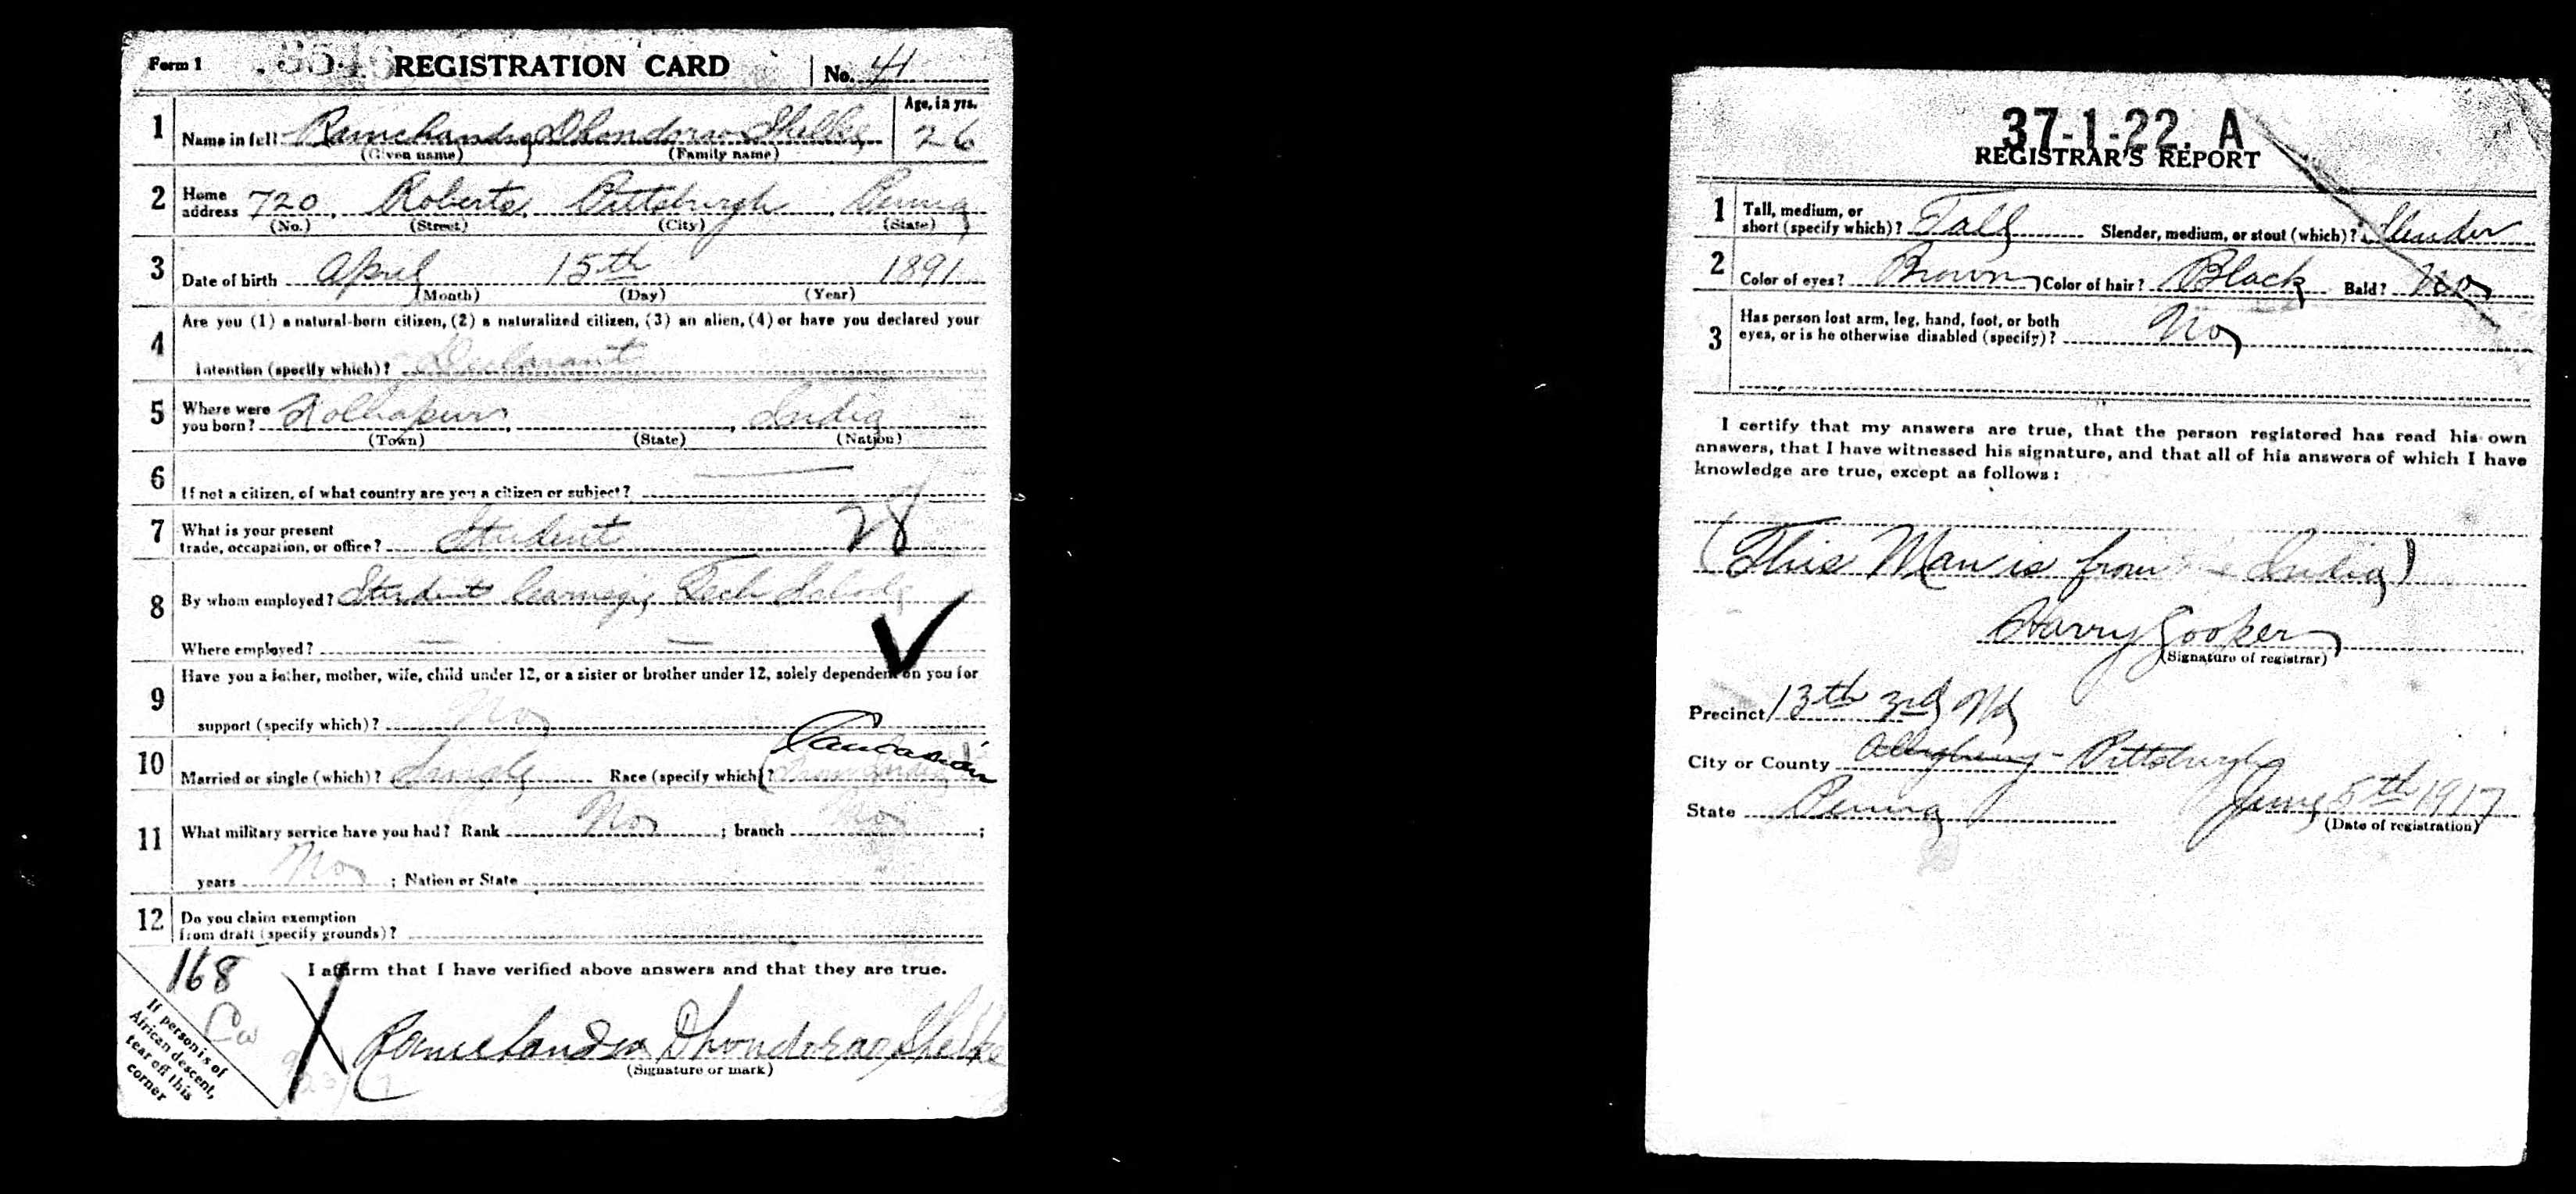 Form 1 3548 REGISTRATION CARD No. 41
1 Name in full Ramchandra Dhondorao Shelke Age, in yrs. 26
(Given name) (Family name)
2 Home address 720, Roberts, Pittsburgh, Penna
(No.) (Street) (City) (State)
3 Date of birth April 15th 1891
(Month) (Day) (Year)
4 Are you (1) a natural-born citizen, (2) a naturalized citizen, (3) an alien, (4) or have you declared your
intention (specify which)? Declarant
5 Where were you born? Kolhapur, , India
(Town) (State) (Nation)
6 If not a citizen, of what country are you a citizen or subject?
7 What is your present
trade, occupation, or office? Student 28
8 By whom employed? Student Carnegie Tech School
Where employed? — —
9 Have you a father, mother, wife, child under 12, or a sister or brother under 12, solely dependent on you for
support (specify which)? No
Caucasian
10 Married or single (which)? Single Race (specify which)?
11 What military service have you had? Rank No ; branch No ;
years No ; Nation or State
12 Do you claim exemption
from draft (specify grounds)?
168 I affirm that I have verified above answers and that they are true.
If person is of
African descent,
tear off this
corner
X Ramchandra Dhondorao Shelke
(Signature or mark)
37-1-22. A
REGISTRAR'S REPORT
1 Tall, medium, or
short (specify which)? Tall Slender, medium, or stout (which)? Slender
2 Color of eyes? Brown Color of hair? Black Bald? No
3 Has person lost arm, leg, hand, foot, or both
eyes, or is he otherwise disabled (specify)? No
I certify that my answers are true, that the person registered has read his own
answers, that I have witnessed his signature, and that all of his answers of which I have
knowledge are true, except as follows:
(This Man is from India)
Harry Cooper
(Signature of registrar)
Precinct 13th 3rd Wd
City or County Allegheny - Pittsburgh
State Penna June 5th 1917
(Date of registration)